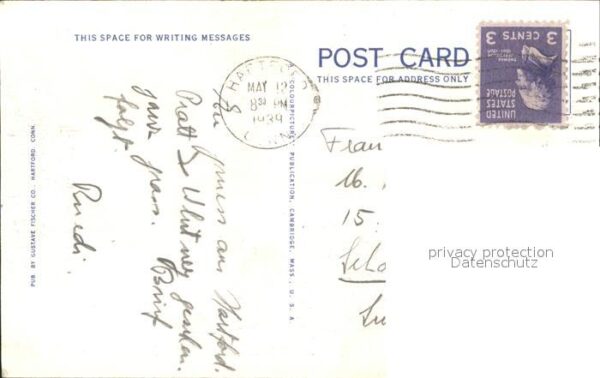 THIS SPACE FOR WRITING MESSAGES
POST CARD
THIS SPACE FOR ADDRESS ONLY
HARTFORD
MAY 12
8 30 PM
1939
CONN.
UNITED
STATES
POSTAGE
3 CENTS 3
aus Hartford.
Pratt & Whitney
Brief
folgt.
Ruedi.
PUB BY GUSTAVE FISCHER CO. HARTFORD. CONN.
COLOURPICTURE PUBLICATION, CAMBRIDGE, MASS., U. S. A.
Frau
16.
15.
privacy protection
Datenschutz